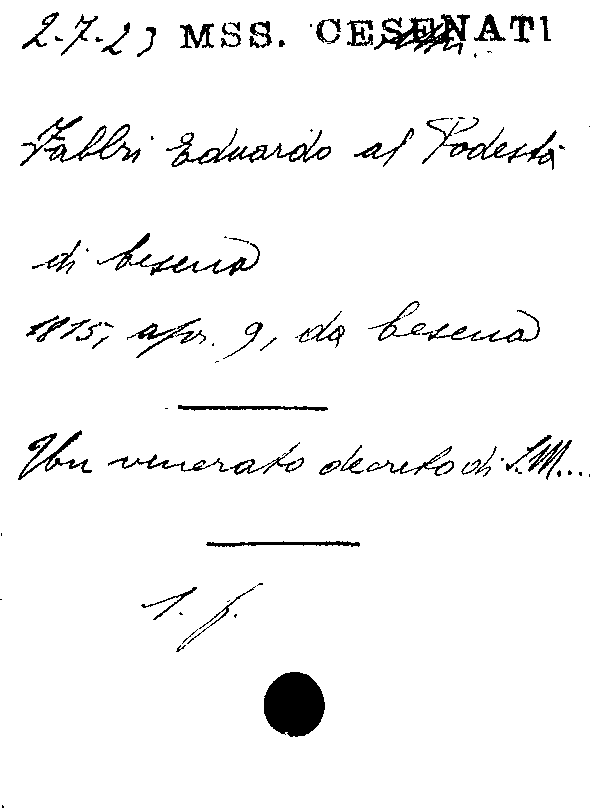 2-7-23 MSS. CESENATI
Fabbri Eduardo al Podestà
di Cesena
1815, apr. 9, da Cesena
Un venerato decreto di S.M....
1. f.